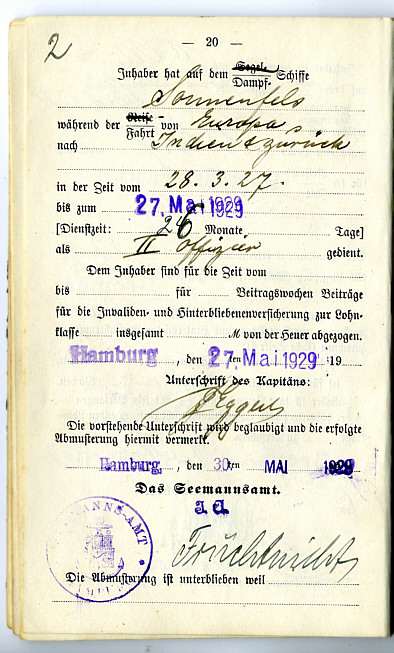 2
— 20 —
Inhaber hat auf dem Segel- Schiffe
Dampf-
Sonnenfels
während der Reise - von Europa
Fahrt
nach Indien & zurück
in der Zeit vom 28. 3. 27.
bis zum 27. Mai 1929
[Dienstzeit: 26 Monate Tage]
als II Offizier gedient.
Dem Inhaber sind für die Zeit vom
bis für Beitragswochen Beiträge
für die Invaliden- und Hinterbliebenenversicherung zur Lohn-
klasse insgesamt M von der Heuer abgezogen.
Hamburg, den 27ten Mai 1929 19
Unterschrift des Kapitäns:
Eggers
Die vorstehende Unterschrift wird beglaubigt und die erfolgte
Abmusterung hiermit vermerkt.
Hamburg, den 30ten MAI 1929
Das Seemannsamt.
J. A.
Früchtnicht
SEEMANNS-AMT
Die Abmusterung ist unterblieben weil